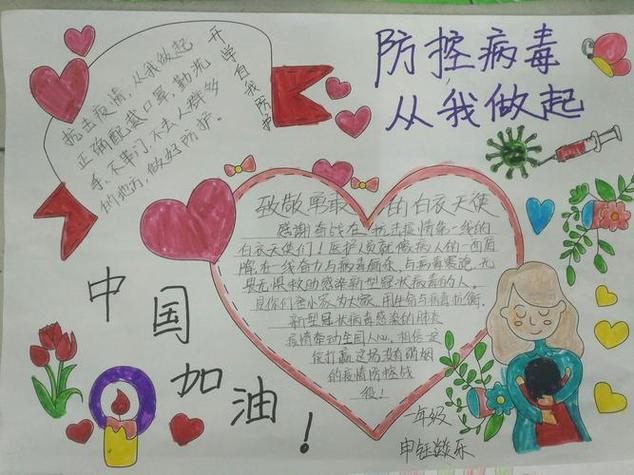 防控病毒
从我做起
开学自我防护
抗击疫情，从我做起
正确配戴口罩，勤洗
手、不串门、不去人群多
的地方，做好防护。
致敬勇敢的白衣天使
感谢奋战在抗击疫情第一线的
白衣天使们！医护人员就像病人的一面盾
牌，在一线奋力与病毒
与病毒赛跑，无
畏无惧救助感染新型冠状病毒的人。
是你们舍小家为大家，用生命与病毒抗衡，
新型冠状病毒感染的肺炎
疫情牵动全国人心，相信一定
能打赢这场没有硝烟
的疫情防控战
役！
中国加油！
一年级